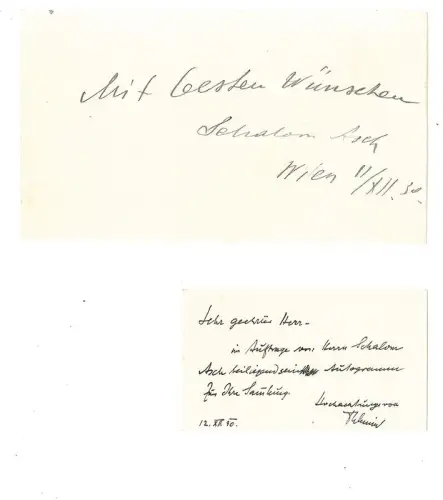 Mit besten Wünschen
Schalom Asch
Wien 11/XII. 30.
Sehr geehrter Herr –
im Auftrage von Herrn Schalom
Asch beiliegend sein Autogramm
für Ihre Samlung.
Hochachtungsvoll
12. XII 30.